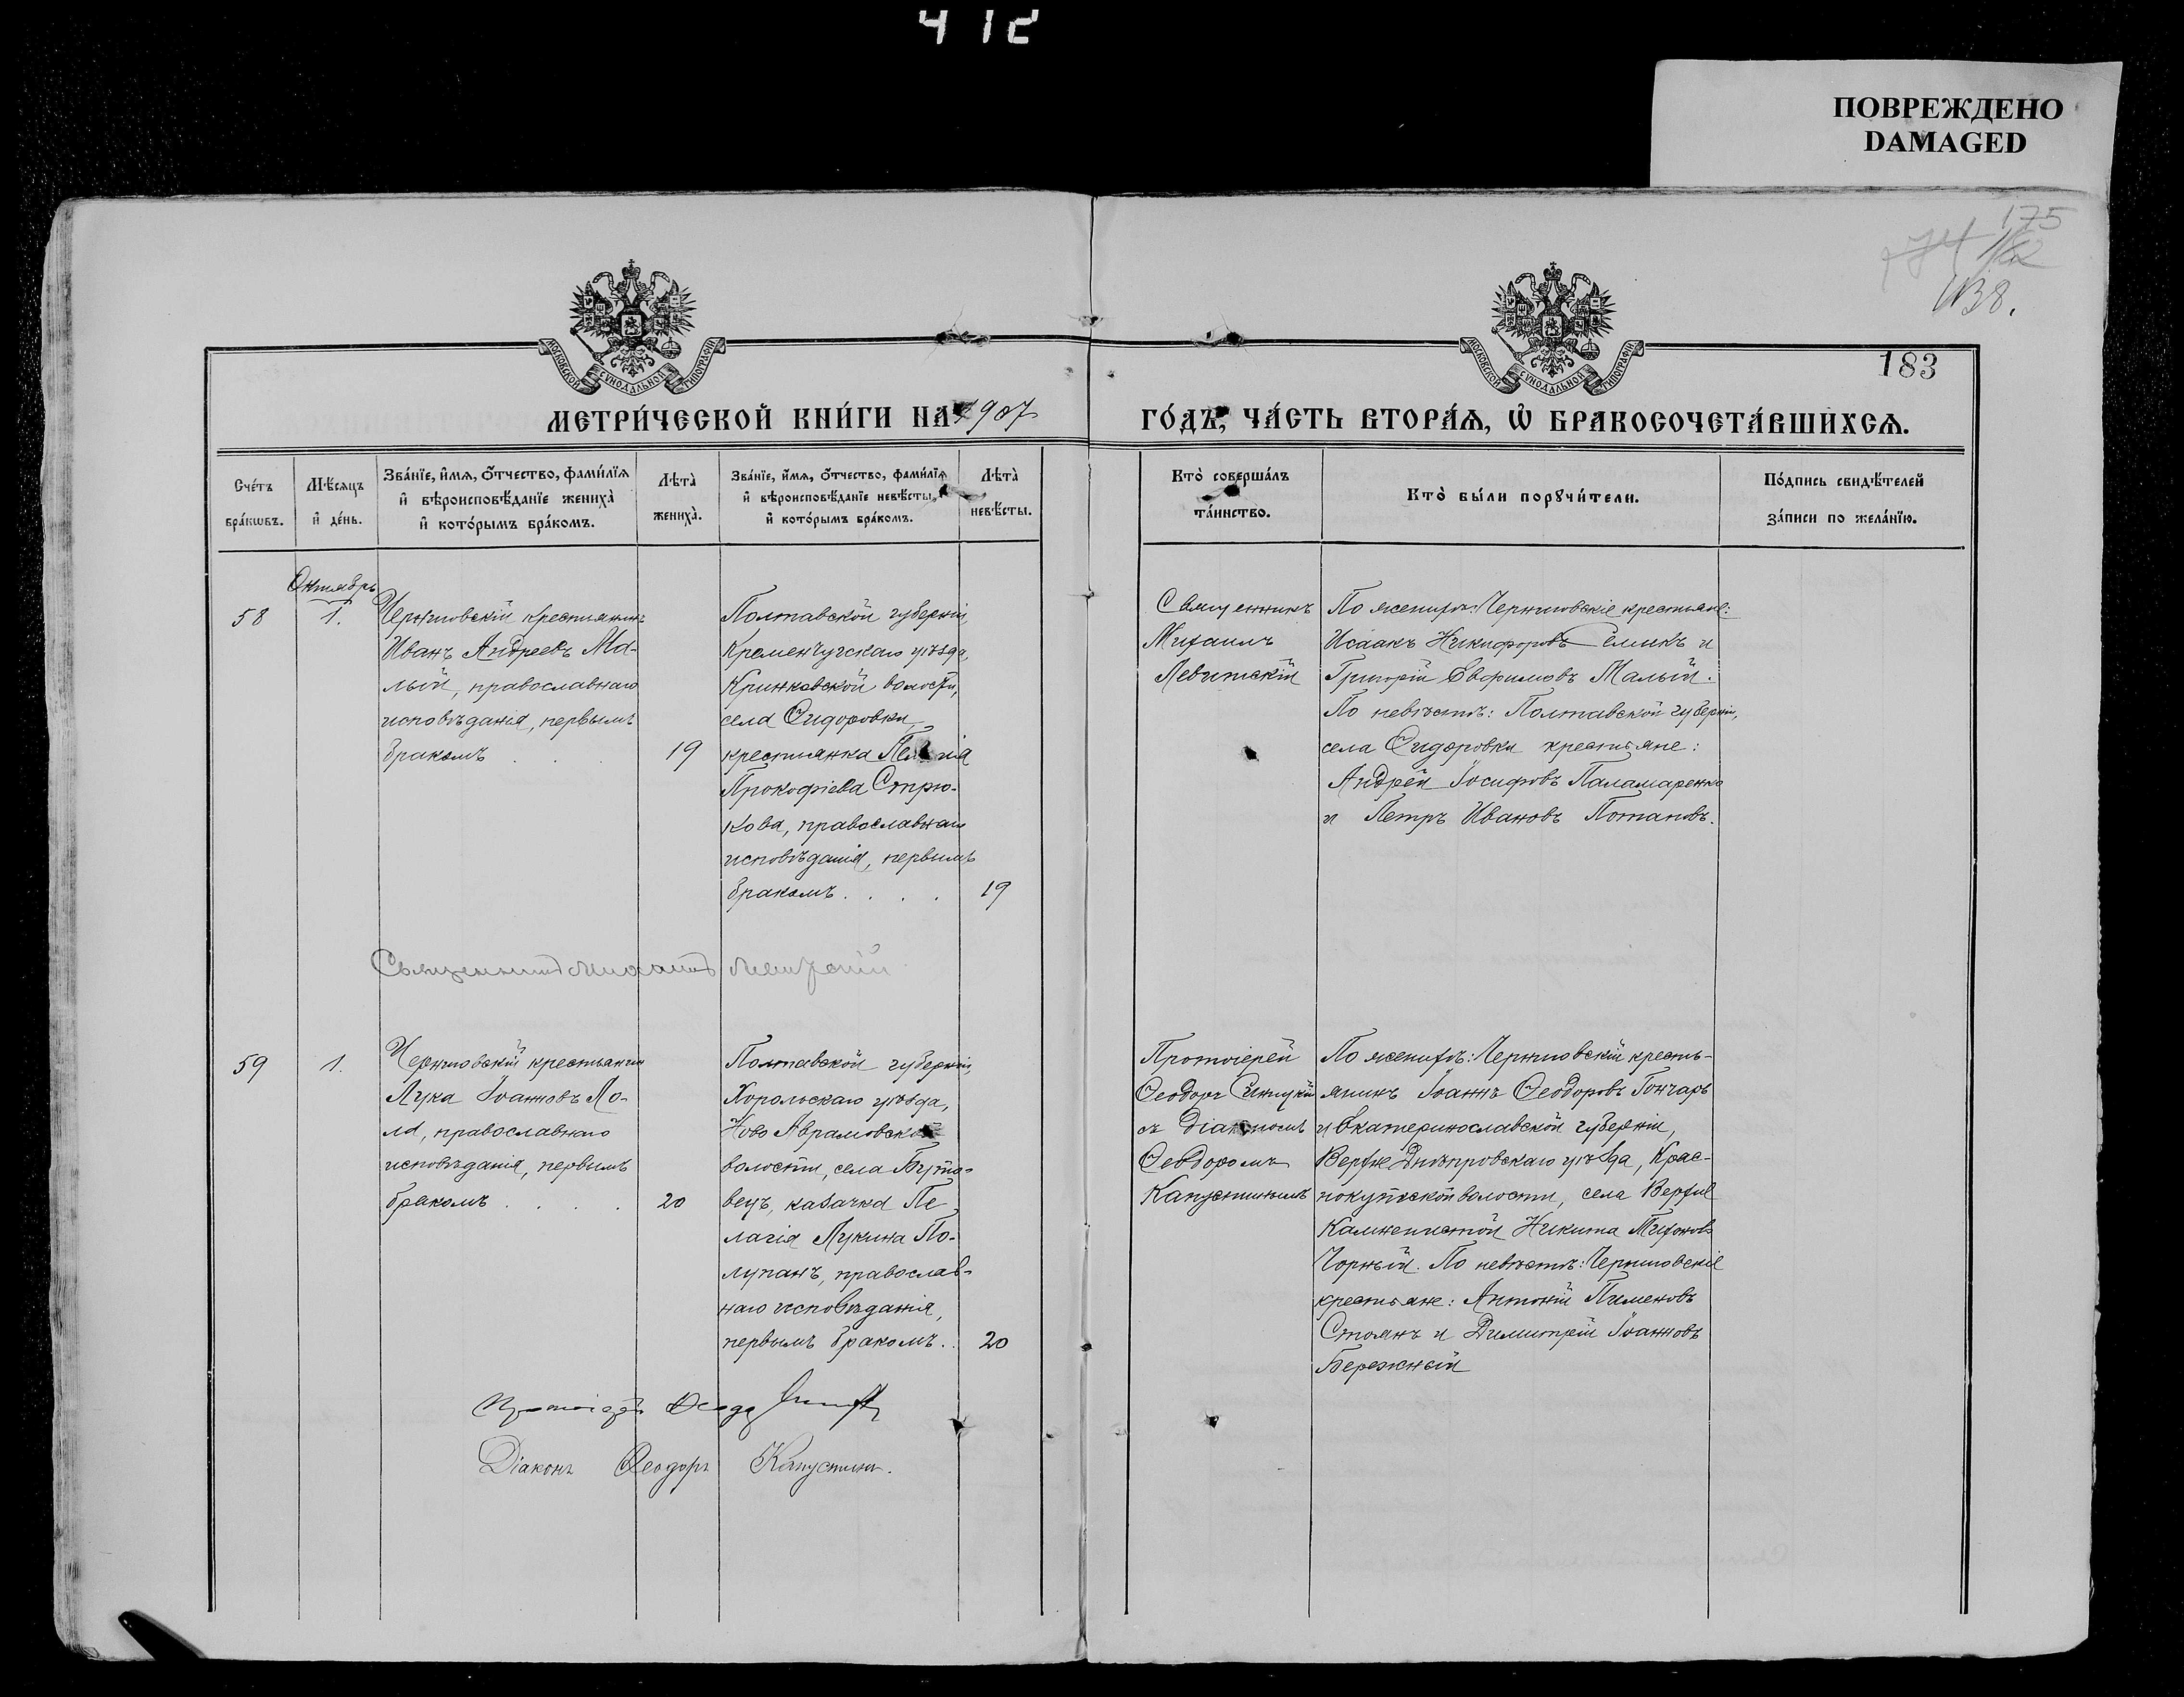 412
ПОВРЕЖДЕНО
DAMAGED
175
183
МОСКОВСКОЙ СѴНОДАЛЬНОЙ ТИПОГРАФІИ
МОСКОВСКОЙ СѴНОДАЛЬНОЙ ТИПОГРАФІИ
МЕТРИ́ЧЕСКОЙ КНИ́ГИ НА 1907 ГО́ДЪ, ЧА́СТЬ ВТОРА́Ѧ, Ѡ҆ БРАКОСОЧЕТА́ВШИХСѦ.
Сче́тъ
бра́кѡвъ.
Мѣ́сяцъ
и҆ де́нь.
Зва́нїе, и҆́мѧ, ѻ҆́тчество, фами́лїѧ
и҆ вѣроисповѣ́данїе жениха̀
и҆ кото́рымъ бра́комъ.
Лѣта̀
жениха̀.
Зва́нїе, и҆́мѧ, ѻ҆́тчество, фами́лїѧ
и҆ вѣроисповѣ́данїе невѣ́сты,
и҆ кото́рымъ бра́комъ.
Лѣта̀
невѣ́сты.
Кто̀ соверша́лъ
та́инство.
Кто̀ бы́ли порꙋчи́тели.
По́дпись свидѣ́телей
за́писи по жела́нїю.
Октябрь
58
1.
Черниговскій крестьянинъ
Иванъ Андреевъ Ма-
лый, православнаго
исповѣданія, первымъ
бракомъ . . .
19
Полтавской губерніи,
Кременчугскаго уѣзда,
Кринковской волости,
села Сидоровки,
крестьянка
Прокофіева Стрю-
кова, православнаго
исповѣданія, первымъ
бракомъ . . . .
19
Священникъ
Михаилъ
Левитскій
По женихѣ: Черниговскіе крестьяне:
Исаакъ Никифоровъ Семикъ и
Григорій Евфимовъ Малый.
По невѣстѣ: Полтавской губерніи,
села Сидоровки крестьяне:
Андрей Іосифовъ Паламаренко
и Петръ Ивановъ Потаповъ.
Священникъ Михаилъ Левитскій
59
1.
Черниговскій крестьянинъ
Лука Іоанновъ Ло-
ла, православнаго
исповѣданія, первымъ
бракомъ . . . .
20
Полтавской губерніи,
Хорольскаго уѣзда,
Ново Аврамовской
волости, села
вецъ, казачка Пе
лагія Лукина По-
лупанъ, православ-
наго исповѣданія,
первымъ бракомъ..
20
Протоіерей
Ѳеодоръ Синицкій
съ діакономъ
Ѳеодоромъ
Капустинымъ
По женихѣ: Черниговскій кресть-
янинъ Іоаннъ Ѳеодоровъ Гончаръ
и Екатеринославской губерніи,
Верхне Днѣпровскаго уѣзда, Крас-
нокутской волости, села Верхне
Каменистой Никита
Чорный. По невѣстѣ: Черниговскіе
крестьяне: Антоній Пименовъ
Стоянъ и Димитрій Іоанновъ
Бережный
Протоіерей Ѳеодоръ
Діаконъ Ѳеодоръ Капустинъ.